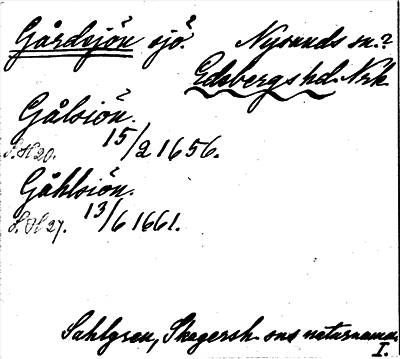 Gårdsjön sjö. Nysunds sn.?
Edsbergs hd. Nrk.
Gålsiön.
S.H 20. 15/2 1656.
Gåhlsiön.
S.H 27. 13/6 1661.
Sahlgren, Skagersh. ons naturnamn.
I.